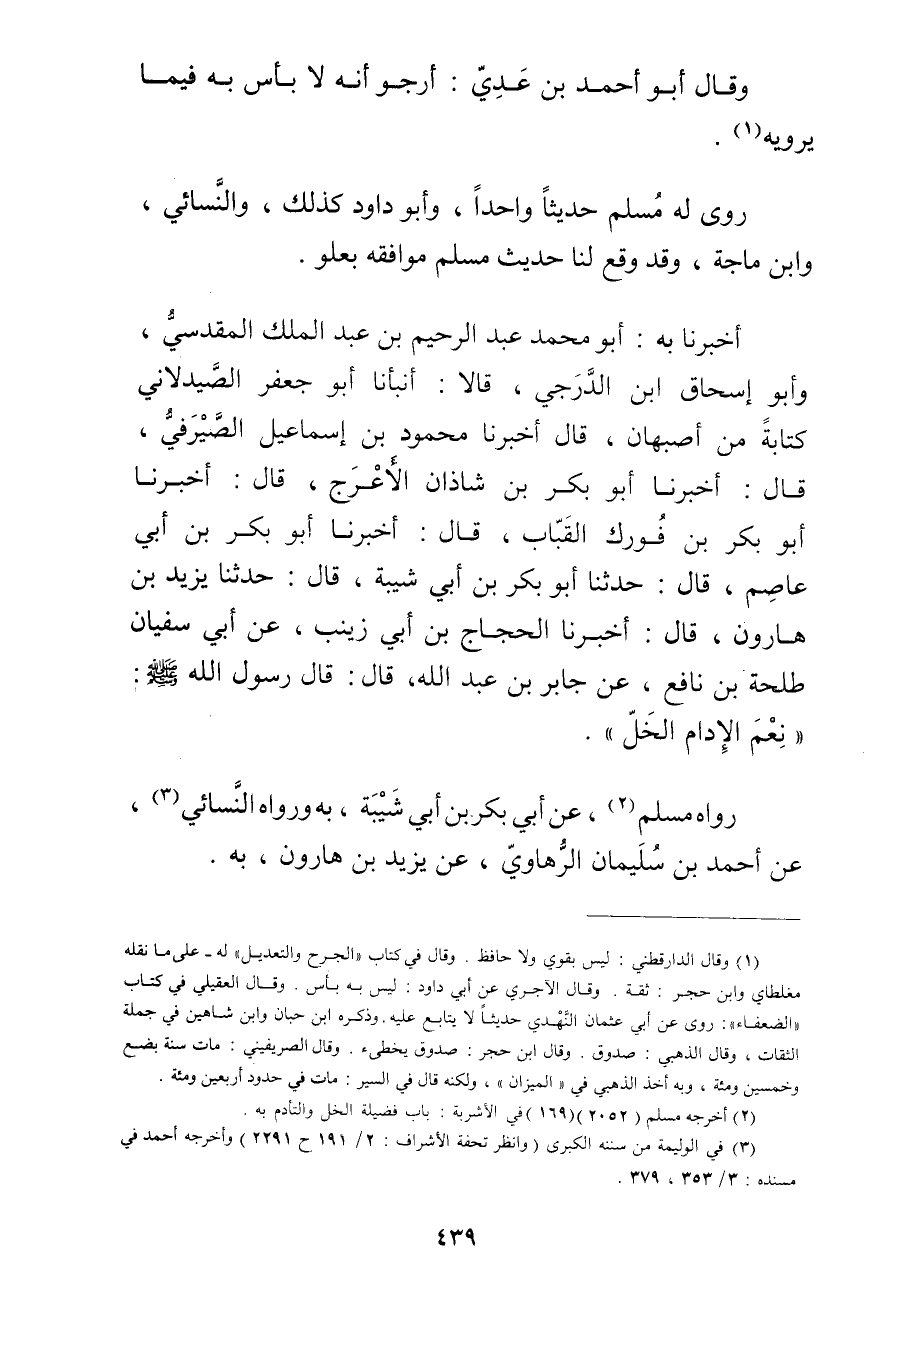 وقال أبو أحمد بن عَدِيّ : أرجو أنه لا بأس به فيما
يرويه(١) .
روى له مُسلم حديثاً واحداً ، وأبو داود كذلك ، والنَّسائي ،
وابن ماجة ، وقد وقع لنا حديث مسلم موافقه بعلو .
أخبرنا به : أبو محمد عبد الرحيم بن عبد الملك المقدسيُّ ،
وأبو إسحاق ابن الدَّرَجي ، قالا : أنبأنا أبو جعفر الصَّيدلاني
كتابةً من أصبهان ، قال أخبرنا محمود بن إسماعيل الصَّيْرَفيُّ ،
قال : أخبرنا أبو بكر بن شاذان الأَعْرَج ، قال : أخبرنا
أبو بكر بن فُورك القَبّاب ، قال : أخبرنا أبو بكر بن أبي
عاصِم ، قال : حدثنا أبو بكر بن أبي شيبة ، قال : حدثنا يزيد بن
هارون ، قال : أخبرنا الحجاج بن أبي زينب ، عن أبي سفيان
طلحة بن نافع ، عن جابر بن عبد الله، قال : قال رسول الله ﷺ :
« نِعْمَ الإِدام الخَلّ » .
رواه مسلم(٢) ، عن أبي بكر بن أبي شَيْبَة ، به ورواه النَّسائي(٣) ،
عن أحمد بن سُلَيمان الرُّهاويّ ، عن يزيد بن هارون ، به .
(١) وقال الدارقطني : ليس بقوي ولا حافظ . وقال في كتاب «الجرح والتعديل» له ـ على ما نقله
مغلطاي وابن حجر : ثقة . وقال الآجري عن أبي داود : ليس به بأس . وقال العقيلي في كتاب
«الضعفاء»: روى عن أبي عثمان النَّهْدي حديثاً لا يتابع عليه. وذكره ابن حبان وابن شاهين في جملة
الثقات ، وقال الذهبي : صدوق . وقال ابن حجر : صدوق يخطىء . وقال الصريفيني : مات سنة بضع
وخمسين ومئة ، وبه أخذ الذهبي في « الميزان » ، ولكنه قال في السير : مات في حدود أربعين ومئة .
(٢) أخرجه مسلم ( ٢٠٥٢ )(١٦٩ )في الأشربة : باب فضيلة الخل والتأدم به .
(٣) في الوليمة من سننه الكبرى ( وانظر تحفة الأشراف : ٢/ ١٩١ ح ٢٢٩١ ) وأخرجه أحمد في
مسنده : ٣/ ٣٥٣ ، ٣٧٩ .
٤٣٩